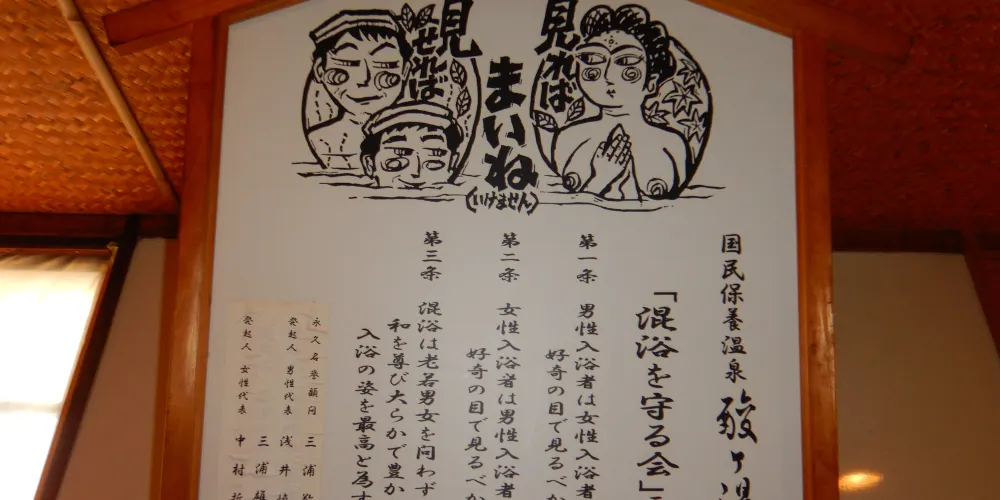 見れば
まいね
(いけません)
見せれば
国民保養温泉 酸ヶ湯
「混浴を守る会」
第一条 男性入浴者は女性入浴者
好奇の目で見るべか
第二条 女性入浴者は男性入浴者
好奇の目で見るべか
第三条 混浴は老若男女を問わず
和を尊び大らかで豊か
入浴の姿を最高と為す
永久名誉顧問 三浦
発起人 男性代表 浅井
三浦雄
発起人 女性代表 中村